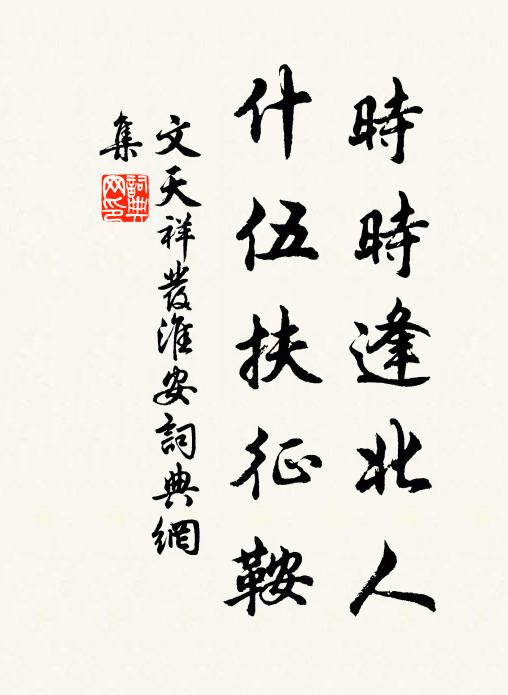 時時逢北人
什伍扶征鞍
文天祥發淮安詞典網
集
詞典
网印